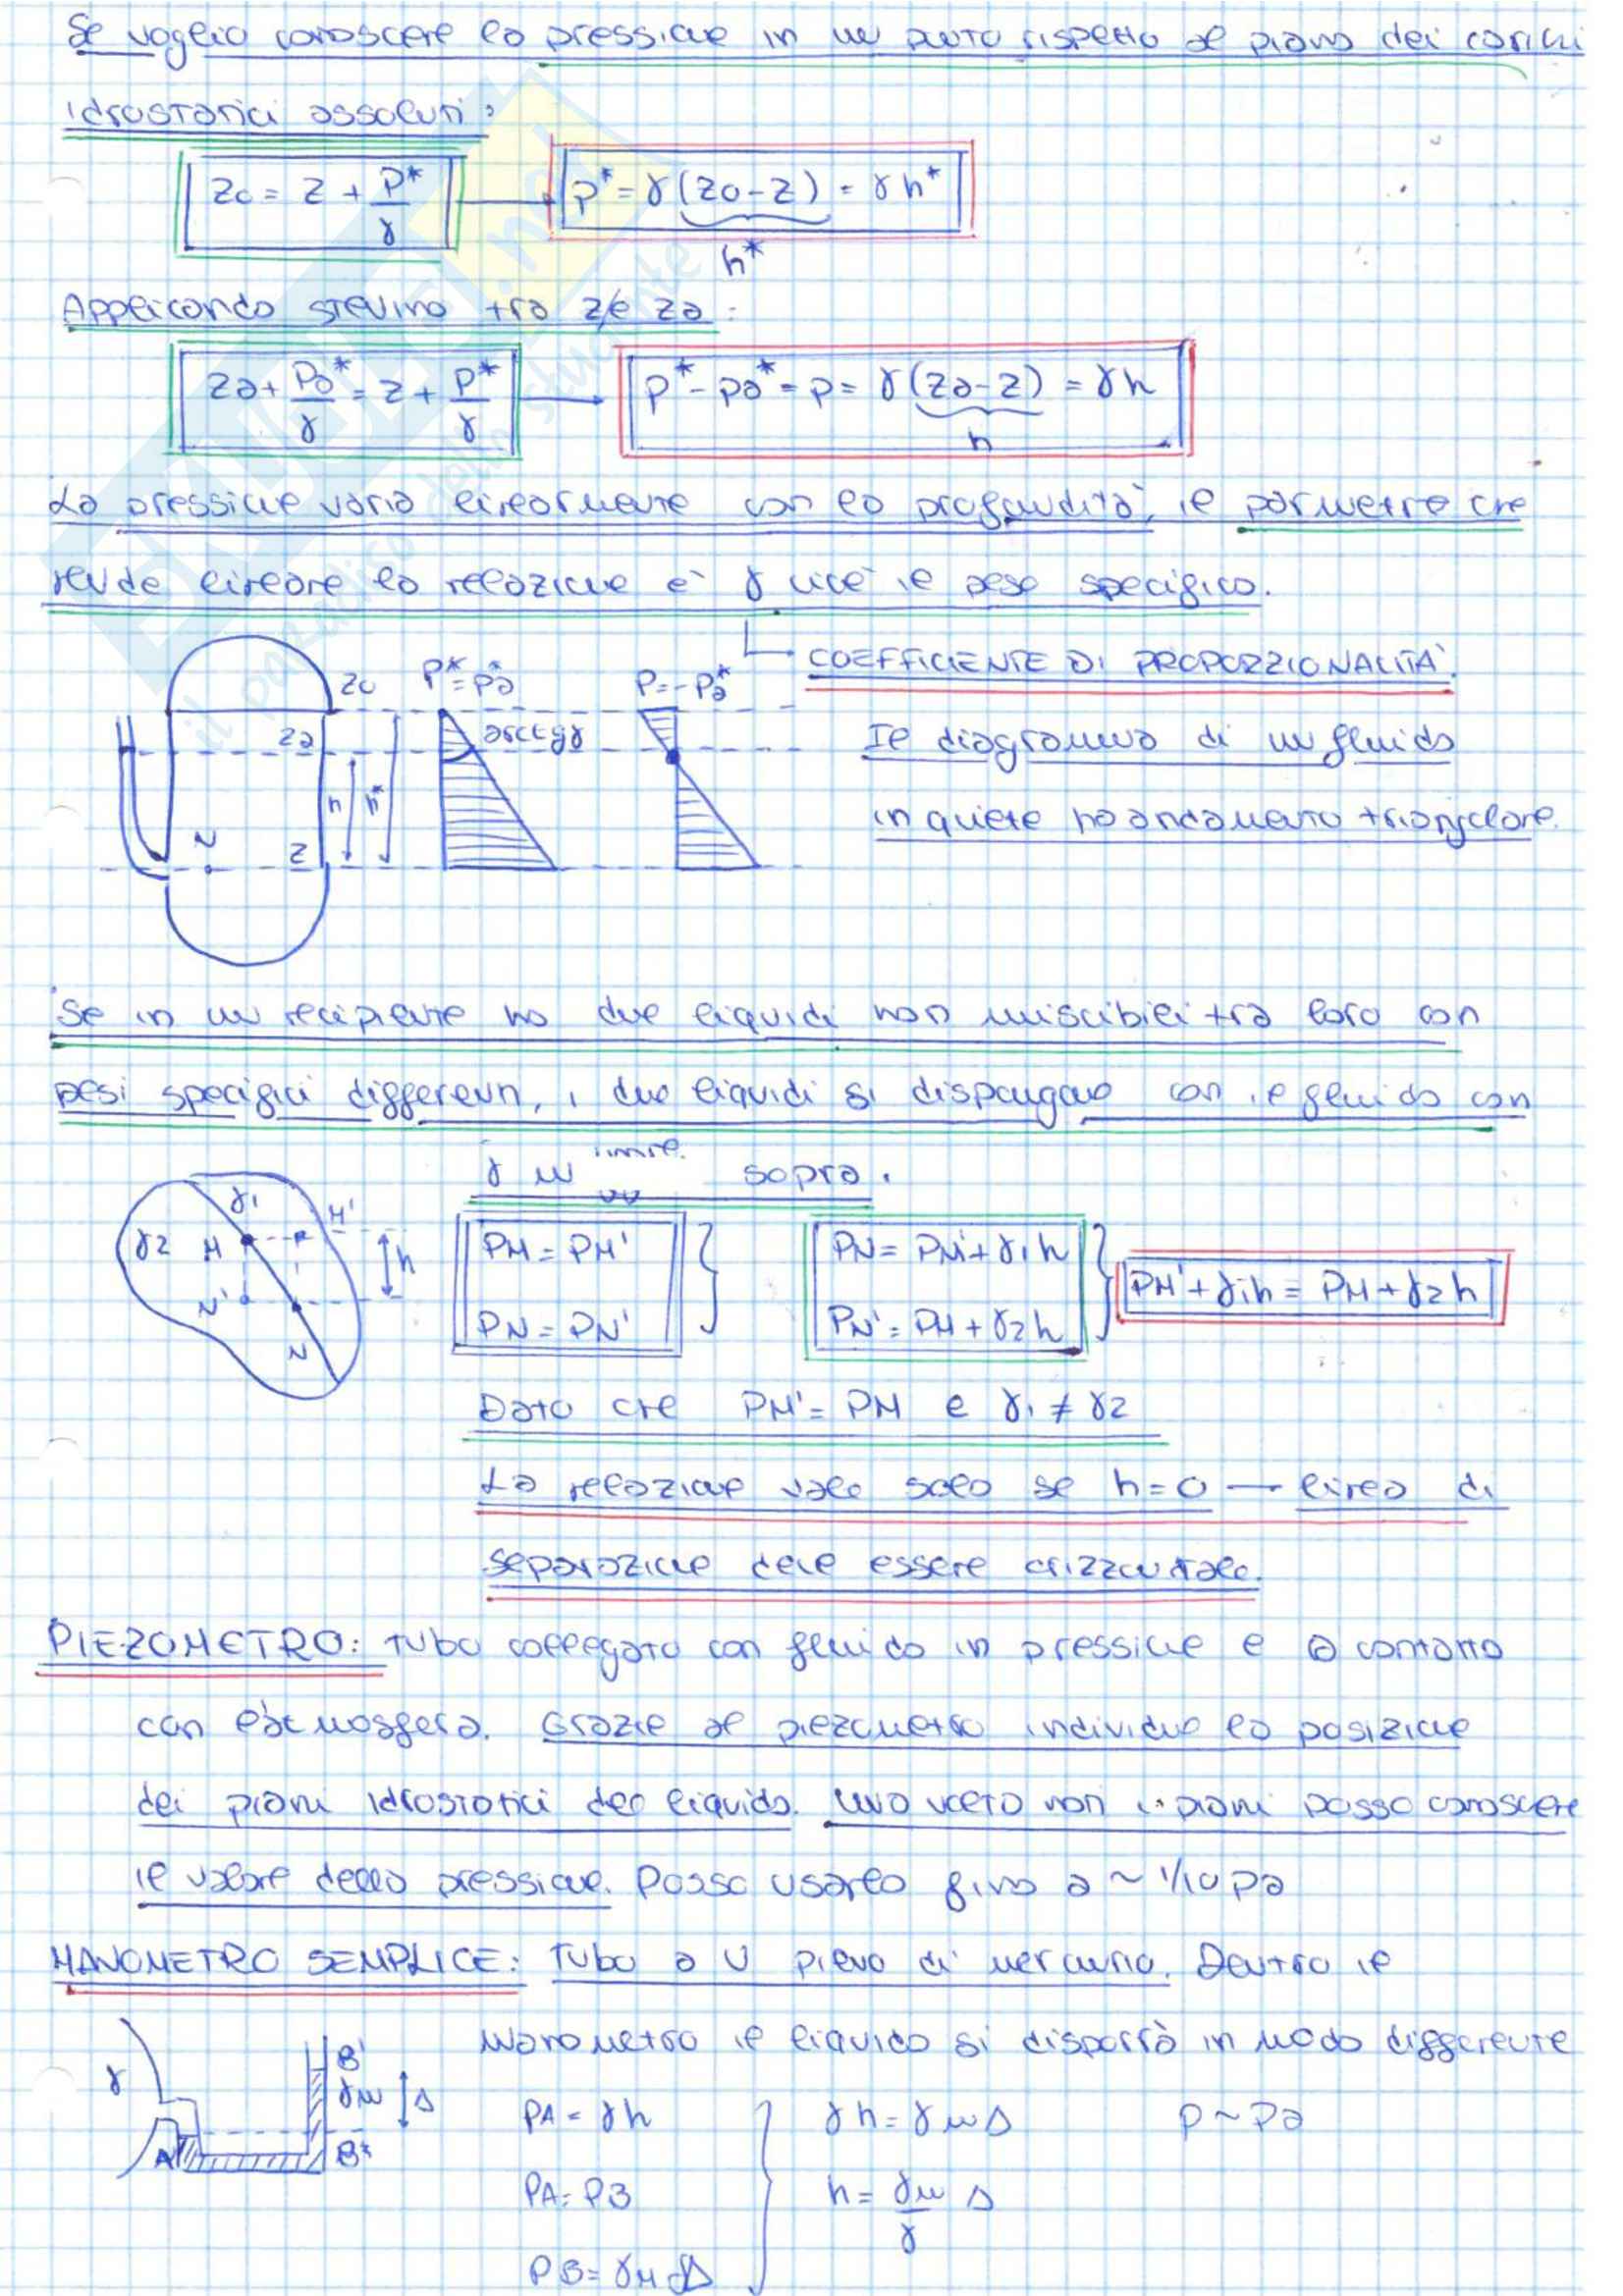 Se voglio conoscere la pressione in un punto rispetto al piano dei carichi
idrostatici assoluti:
z0 = z + p*/γ → p* = γ(z0-z) = γh*
h*
Applicando Stevino tra z e za:
za + pa*/γ = z + p*/γ → p* - pa* = p = γ(za-z) = γh
h
La pressione varia linearmente con la profondità, il parmetro che
rende lineare la relazione è γ cioè il peso specifico.
COEFFICIENTE DI PROPORZIONALITÀ.
z0 p*=pa p=-pa*
za arctgγ
Il diagramma di un fluido
h h*
in quiete ha andamento triangolare.
N z
Se in un recipiente ho due liquidi non miscibili tra loro con
pesi specifici differenti, i due liquidi si dispongono con il fluido con
γ minore sopra.
γ1 M'
γ2 M h
N'
N
PM = PM' PN = PM' + γ1h
PM' + γ1h = PM + γ2h
PN = PN' PN' = PM + γ2h
Dato che PM' = PM e γ1 ≠ γ2
La relazione vale solo se h=0 — linea di
separazione deve essere orizzontale.
PIEZOMETRO: tubo collegato con fluido in pressione e a contatto
con l'atmosfera. Grazie al piezometro individuo la posizione
dei piani idrostatici del liquido. Una volta noti i piani posso conoscere
il valore della pressione. Posso usarlo fino a ~ 1/10 pa
MANOMETRO SEMPLICE: Tubo a U pieno di mercurio. Dentro il
manometro il liquido si disporrà in modo differente
γ B' γm Δ
A B*
PA = γh γh = γmΔ p~pa
PA = PB h = γm/γ Δ
PB = γM Δ
il paradiso dello studente